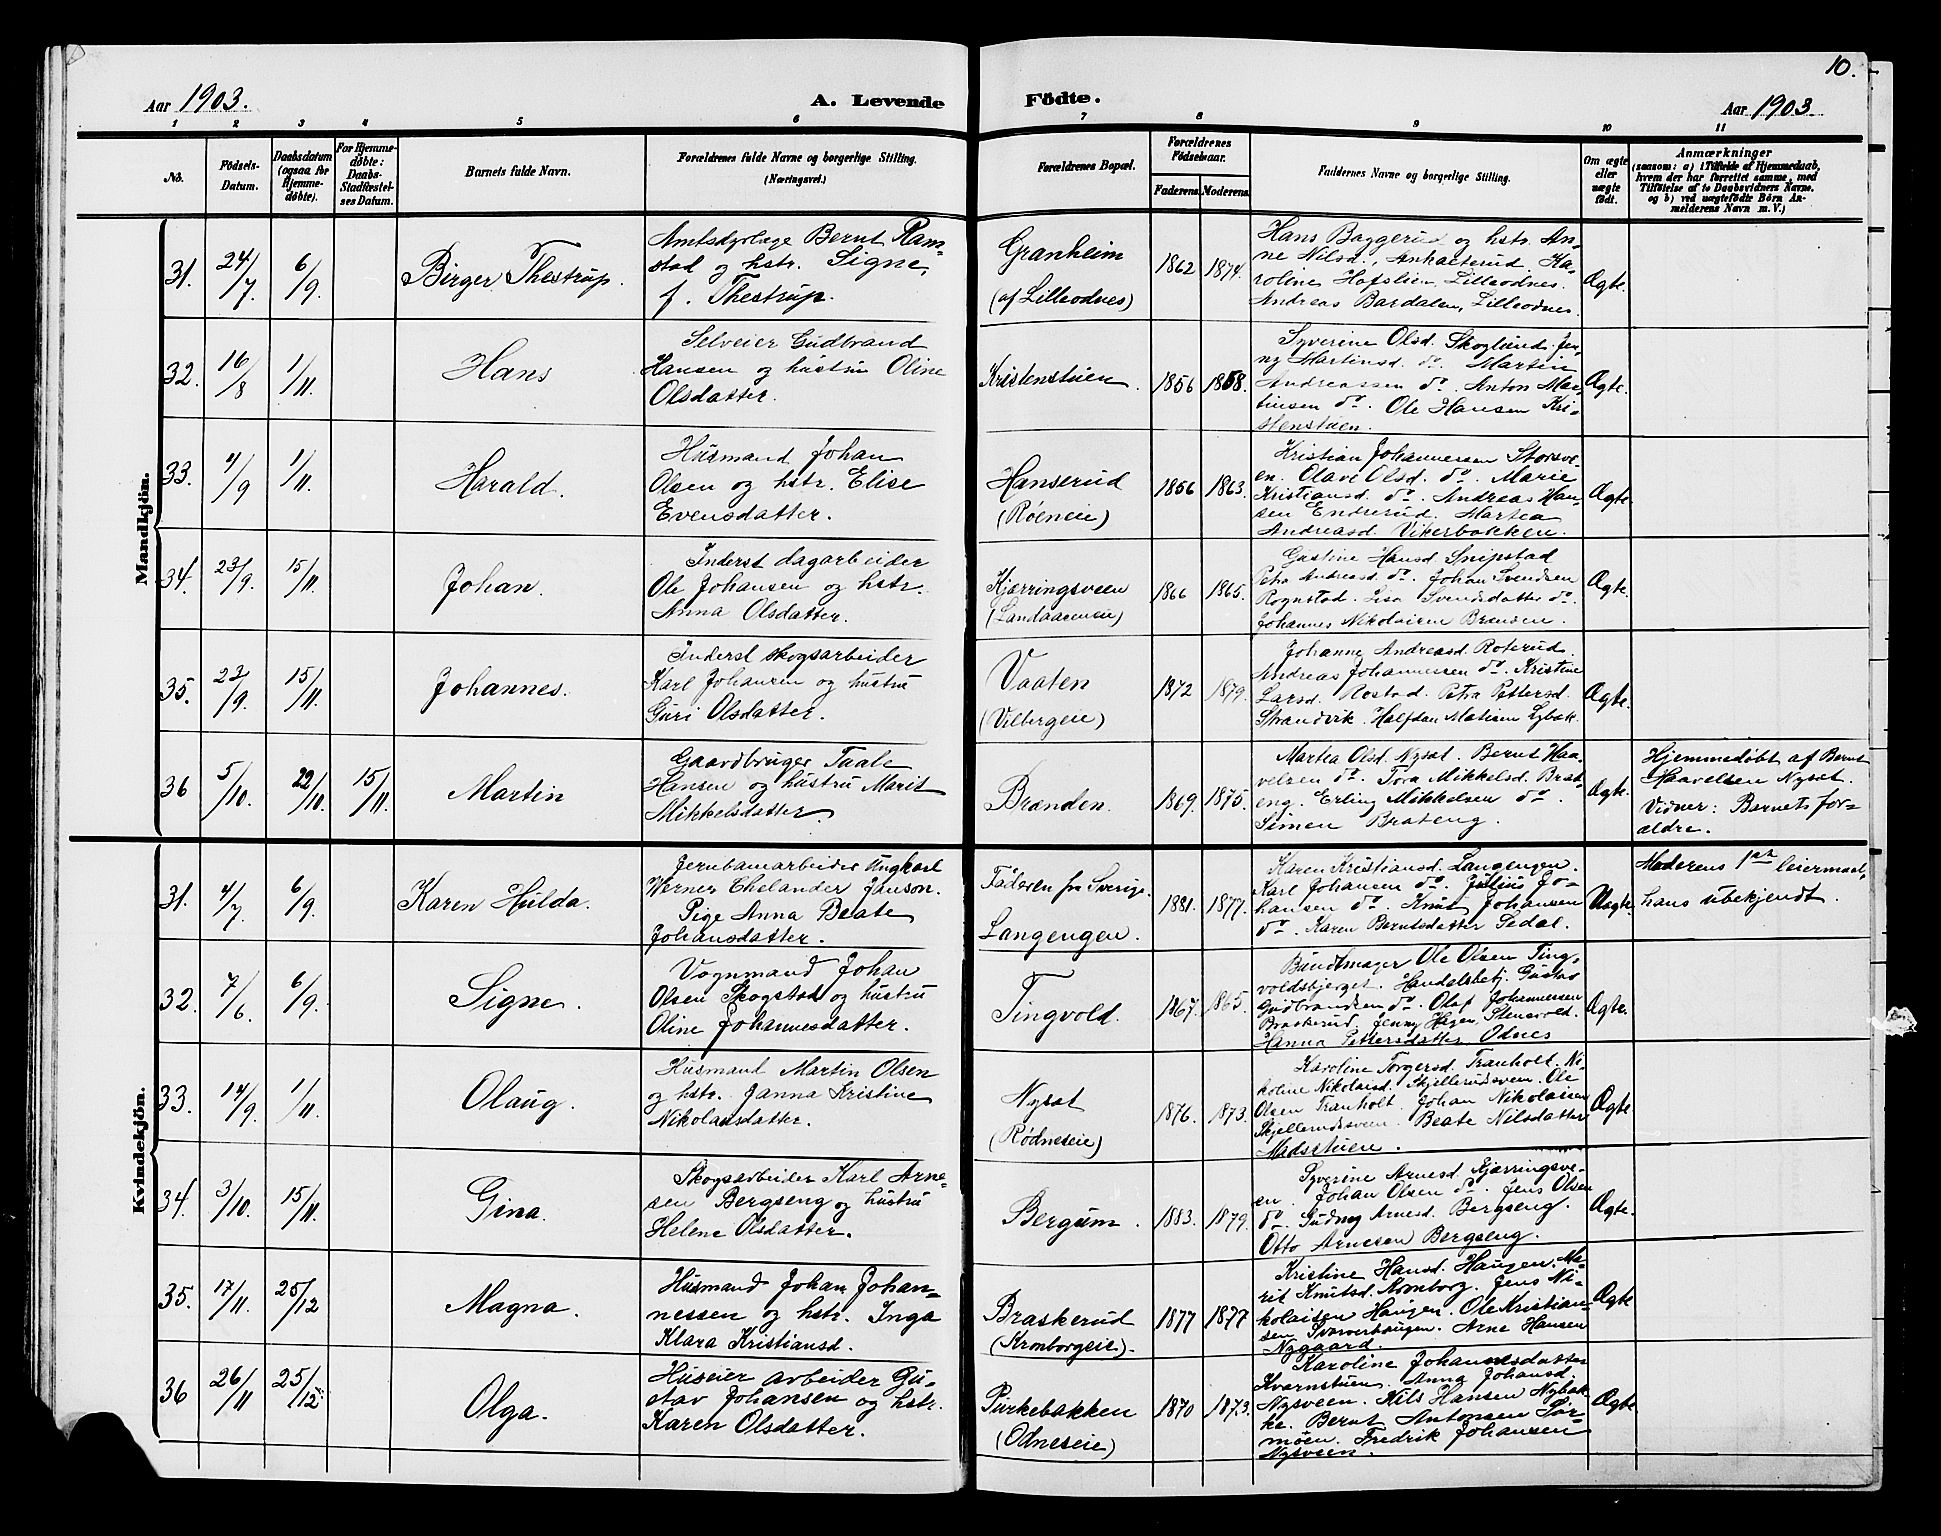 10.
Aar 1903.
A. Levende Födte.
Aar 1903
1 2 3 4 5 6 7 8 9 10 11
No.
Födsels-
Datum.
Daabsdatum
(ogsaa for
Hjemme-
døbte).
For Hjemme-
døbte:
Daabs-
Stadfæstel-
ses Datum.
Barnets fulde Navn.
Forældrenes fulde Navne og borgerlige Stilling.
(Næringsvei.)
Forældrenes Bopæl.
Forældrenes
Födselsaar.
Faderens. Moderens.
Faddernes Navne og borgerlige Stilling.
Om ægte
eller
uægte
født.
Anmærkninger
(saasom: a) i Tilfælde af Hjemmedaab,
hvem der har forrettet samme, med
Tilföielse af to Daabsvidners Navne.
og b) ved uægtefödte Börn An-
melderens Navn m. V.)
Mandkjön.
31.
24/7
6/9
Birger Thestrup.
Amtsdyrlæge Bernt Ram-
stad og hstr. Signe,
f. Thestrup.
Granheim
(af Lilleodnes)
1862
1874.
Hans Baggerud og hstr. An-
ne Nilsd., Anhalterud. Ka-
roline Hofslien, Lilleodnes.
Andreas Bardalen, Lilleodnes.
Ægte.
32.
16/8
1/11.
Hans
Selveier Gudbrand
Hansen og hustru Oline
Olsdatter.
Kristenstuen.
1856
1858.
Syverine Olsd. Skoglund. Jen-
ny Martinsd. do. Martin
Andreassen do. Anton Mar-
tinsen do. Ole Hansen Kri-
stenstuen.
Ægte.
33.
4/9
1/11.
Harald.
Husmand Johan
Olsen og hstr. Elise
Evensdatter.
Hanserud
(Röeneie)
1856
1863.
Kristian Johannessen Storsve-
en. Olave Olsd. do. Marie
Kristiansd. do. Andreas Han-
sen Enderud. Martea
Andreasd. Vikerbakken.
Ægte.
34.
23/9.
15/11
Johan.
Inderst dagarbeider
Ole Johansen og hstr.
Anna Olsdatter.
Kjærringsveen
(Landaaseneie)
1866
1865.
Gustine Hansd. Snipstad
Petra Andreasd. do. Johan Svendsen
Rognstad. Lisa Svendsdatter do.
Johannes Nikolaisen Brænden.
Ægte.
35.
23/9.
15/11.
Johannes.
Inderst skogsarbeider
Karl Johansen og hustru
Guri Olsdatter.
Vaaten
(Vilbergeie)
1872
1879.
Johanne Andreasd. Roterud.
Andreas Johannessen do. Kristine
Larsd. Rostad. Petra Pettersd.
Strandvik. Halfdan Matisen Lybæk.
Ægte.
36
5/10.
22/10.
15/11.
Martin
Gaardbruger Taale
Hansen og hustru Marit
Mikkelsdatter.
Brænden.
1869.
1875.
Martea Olsd. Nysæt. Bernt Haa-
velsen do. Tora Mikkelsd. Brat-
eng. Erling Mikkelsen do.
Simen Brateng.
Ægte.
Hjemmedøbt af Bernt
Haavelsen Nysæt.
Vidner: Barnets for-
ældre.
Kvindekjön.
31.
4/7
6/9.
Karen Hulda.
Jernbanearbeider Ungkarl
Werner Thelander Janson.
Pige Anna Beate
Johansdatter.
Faderen fra Sverige.
Langengen.
1881.
1877.
Karen Kristiansd. Langengen.
Karl Johansen do. Julius Jo-
hansen do. Knut Johansen
do. Karen Berntsdatter Sedal.
Uægte.
Moderens 1ste leiermaal,
hans ubekjendt.
32.
7/6.
6/9.
Signe.
Vognmand Johan
Olsen Skogstad og hustru
Oline Johannesdatter.
Tingvold.
1867.
1865.
Bundtmager Ole Olsen Ting-
voldsbjerget. Handelsbetj. Gustav
Gudbrandsen do. Olaf Johannessen
Braskerud. Jenny Hegen, Stensvold.
Hanna Pettersdatter Odnes
Ægte.
33.
14/9.
1/11.
Olaug.
Husmand Martin Olsen
og hstr. Janna Kristine
Nikolaisdatter.
Nysæt
(Rødneseie)
1876.
1873.
Karoline Torgersd. Tranholt. Ni-
koline Nikolaisd. Skjellerudsveen. Ole
Olsen Tranholt. Johan Nikolaisen
Skjellerudsveen. Beate Nilsdatter
Madsstuen.
Ægte
34.
3/10.
15/11.
Gina.
Skogsarbeider Karl Arne-
sen Bergseng og hustru
Helene Olsdatter.
Bergum.
1883.
1879.
Syverine Arnesd. Kjærringsve-
en. Johan Olsen do. Jens Olsen
do. Gudny Arnesd. Bergseng.
Otto Arnesen Bergseng.
Ægte.
35.
17/11.
25/12
Magna.
Husmand Johan Johan-
nessen og hstr. Inga
Klara Kristiansd.
Braskerud
(Kronborgeie).
1877
1877
Kristine Hansd. Haugen. Ma-
rit Knutsd. Kronborg. Jens Ni-
kolaisen Haugen. Ole Kristian-
sen Svarverhaugen. Arne Hansen
Nygaard.
Ægte
36
26/11
25/12.
Olga.
Huseier arbeider Gu-
stav Johansen og hstr.
Karen Olsdatter.
Purkebakken
(Odneseie)
1870
1873.
Karoline Johannesdatter
Kvernstuen. Anna Johansd.
Nysveen. Nils Hansen Nybak-
ke. Bernt Antonsen Sør-
møen. Fredrik Johansen
Nysveen.
Ægte